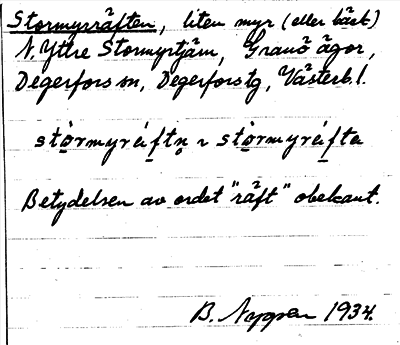 Stormyrräften, liten myr (eller bäck)
N. Yttre Stormyrtjärn, Granö ägor,
Degerfors sn, Degerfors tg, Västerb. l.
stòrmyráftn̥ ~ stòrmyráfta
Betydelsen av ordet "räft" obekant.
B. Nygren 1934.